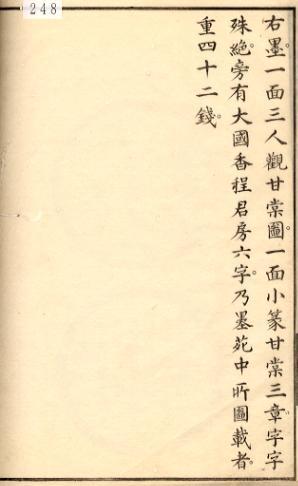 248
右墨。一面三人觀甘棠圖。一面小篆甘棠三章。字字
殊絶。旁有大國香程君房六字。乃墨苑中所圖載者。
重四十二錢。